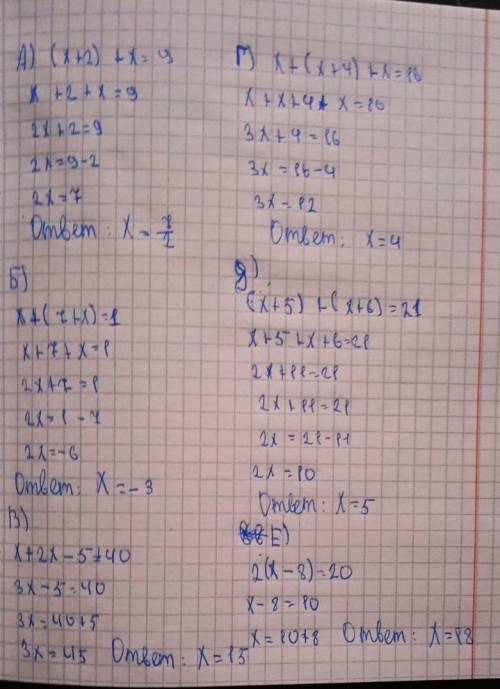 А) (x+2) +x=9
x +2+x=9
2x+2=9
2x=9-2
2x=7
Ответ: x=7/2
Б)
x+(7+x)=1
x+7+x=1
2x+7=1
2x=1-7
2x=-6
Ответ: x=-3
В)
x+2x-5=40
3x-5=40
3x=40+5
3x=45 Ответ: x=15
Г) x+(x+4)+x=16
x+x+4+x=16
3x+4=16
3x=16-4
3x=12
Ответ: x=4
Д)
(x+5)+(x+6)=21
x+5+x+6=21
2x+11=21
2x+11=21
2x=21-11
2x=10
Ответ: x=5
Е)
2(x-8)=20
x-8=10
x=10+8 Ответ: x=18